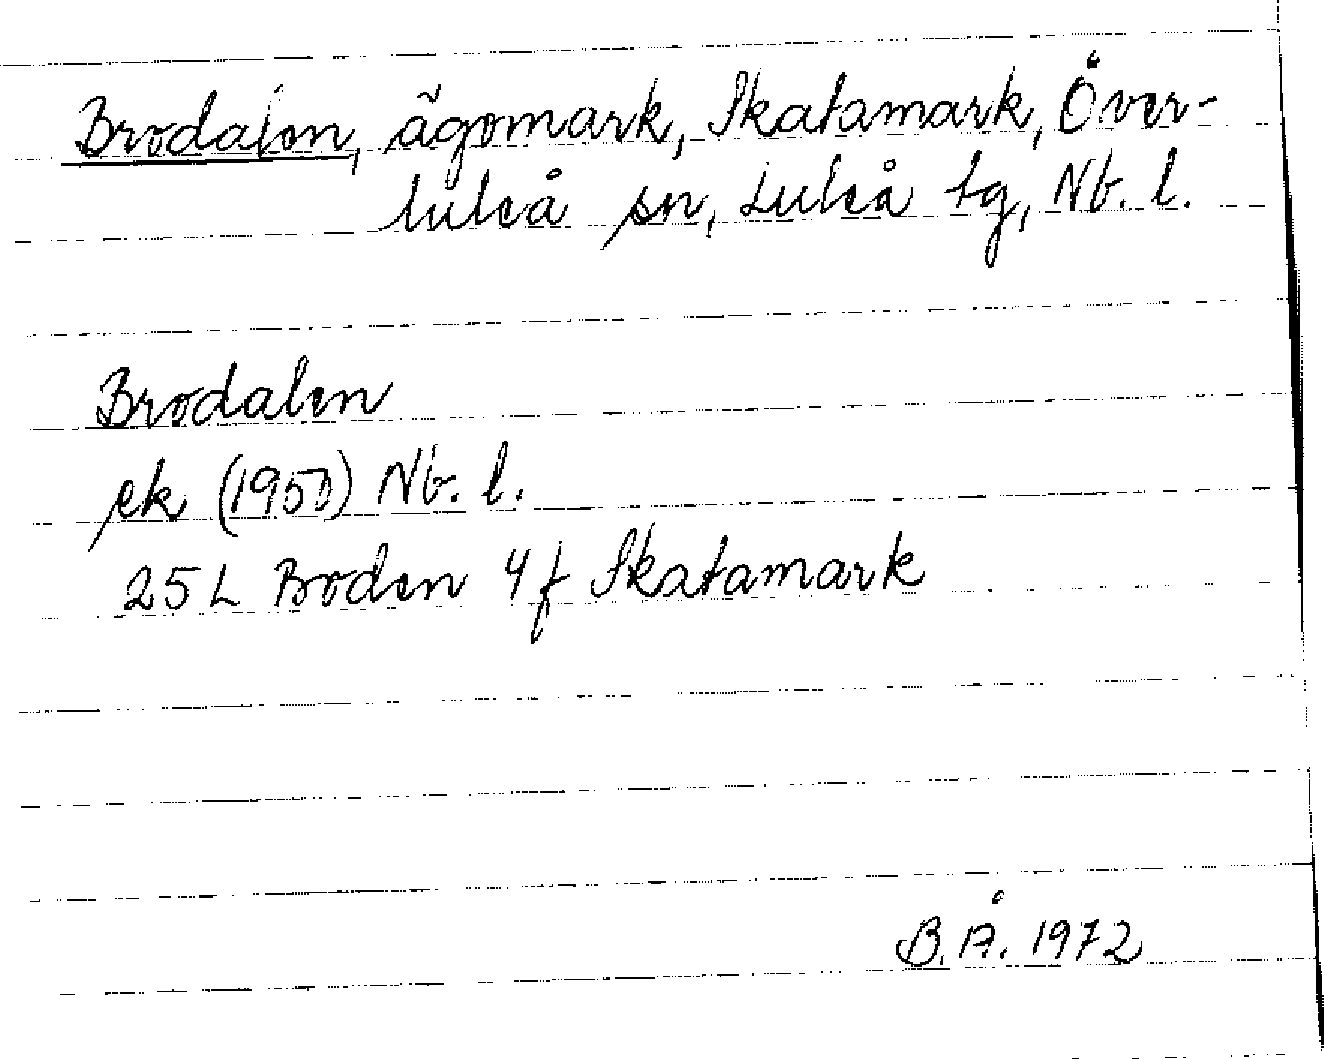 Brodalen, ägomark, Skatamark, Över-
luleå sn, Luleå tg, Nb. l.
Brodalen
ek (1950) Nb. l.
25 L Boden 4 f Skatamark
B. Å. 1972